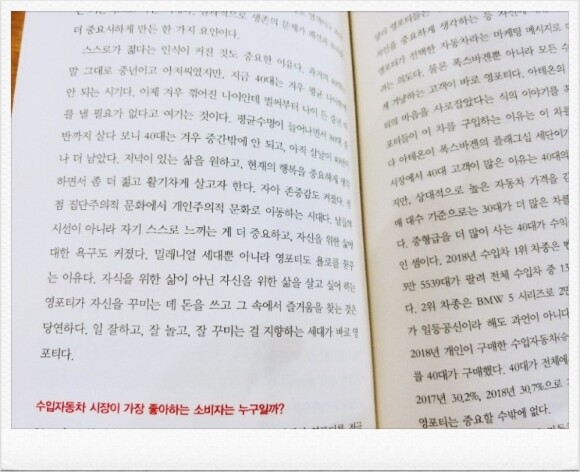 더 중요시하게 만든 한 가지 요인이다.
스스로가 젊다는 인식이 커진 것도 중요한 이유다. 과거의 40대는
말 그대로 중년이고 아저씨였지만, 지금 40대는 겨우 평균 나이밖에
안 되는 시기다. 이제 겨우 꺾어진 나이인데 벌써부터 나이 든 중년 티
를 낼 필요가 없다고 여기는 것이다. 평균수명이 늘어나면서 80대 중
반까지 살다 보니 40대는 겨우 중간밖에 안 되고, 아직 살날이
나 더 남았다. 저녁이 있는 삶을 원하고, 현재의 행복을 중요하게 생각
하면서 좀 더 젊고 활기차게 살고자 한다. 자아 존중감도 커졌다.
점 집단주의적 문화에서 개인주의적 문화로 이동하는 시대다. 남들의
시선이 아니라 자기 스스로 느끼는 게 더 중요하고, 자신을 위한
대한 욕구도 커졌다. 밀레니얼 세대뿐 아니라 영포티도 욜로를 꿈꾸
는 이유다. 자식을 위한 삶이 아닌 자신을 위한 삶을 살고 싶어 하는
영포티가 자신을 꾸미는 데 돈을 쓰고 그 속에서 즐거움을 찾는 것은
당연하다. 일 잘하고, 잘 놀고, 잘 꾸미는 걸 지향하는 세대가 바로 영
포티다.
수입자동차 시장이 가장 좋아하는 소비자는 누구일까?
차안을 중요하게 생각하는 등
영포티가 선택한 자동차라는 마케팅 메시지로
려는 의도다. 물론 폭스바겐뿐 아니라 모든 수
게 겨냥하는 고객이 바로 영포티다. 아테온의
티의 마음을 사로잡았다는 식의 이야기를
포티들이 이 차를 구입하는 이유는 이 차를
다 아테온이 폭스바겐의 플래그십 세단이기
시장에서 40대 고객이 많은 이유는 40대의
지만, 상대적으로 높은 자동차 가격을 감
매 대수 기준으로는 30대가 더 많은 차를
다. 중형급을 더 많이 사는 40대가 수입
인 셈이다. 2018년 수입차 1위 차종은 벤
3만 5539대가 팔려 전체 수입차 중 13
다. 2위 차종은 BMW 5 시리즈로 2만
가 일등공신이라 해도 과언이 아니다
2018년 개인이 구매한 수입자동차(승
를 40대가 구매했다. 40대가 전체에
2017년 30.2%, 2018년 30.7%으로
영포티는 중요할 수밖에 없다.